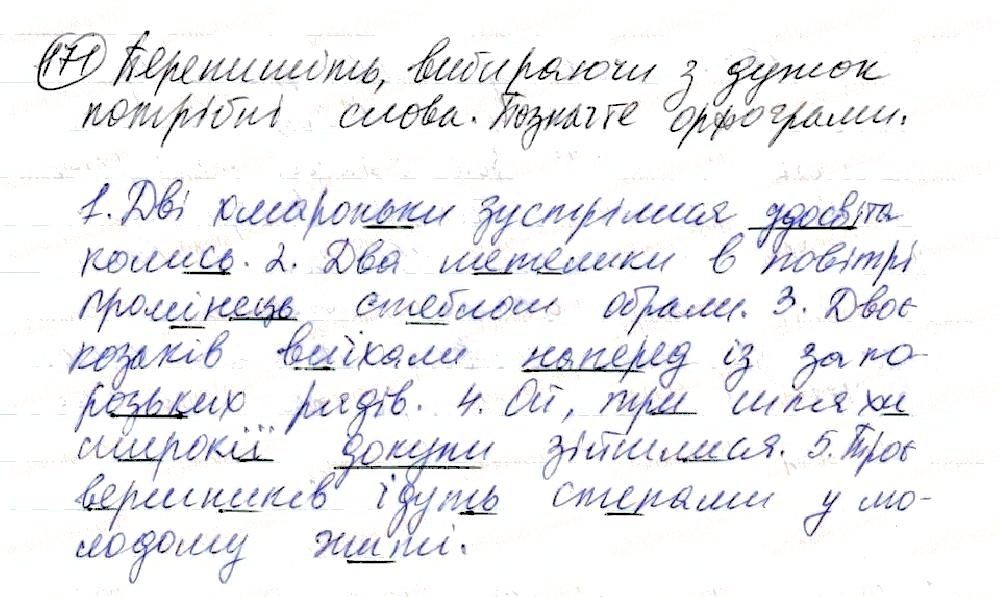 171 Перепишіть, вибираючи з дужок
потрібні слова. Позначте орфограми.
1. Дві хмароньки зустрілися удосвіта
колись. 2. Два метелики в повітрі
промінець стеблом обрали. 3. Двоє
козаків виїхали наперед із запо-
розьких рядів. 4. Ой, три шляхи
широкії докупи зійшлися. 5. Троє
вершників їдуть степами у мо-
лодому житі.